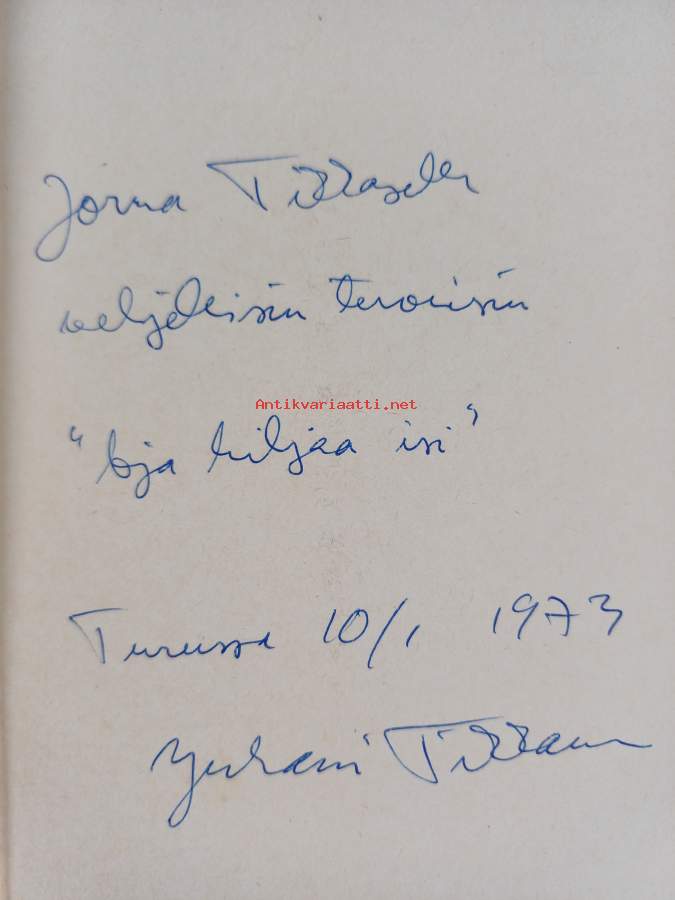 Jorma Tikkaselle
veljellisin terveisin
Antikvariaatti.net
"Aja hiljaa isi"
Turussa 10/1 1973
Juhani Tikkanen